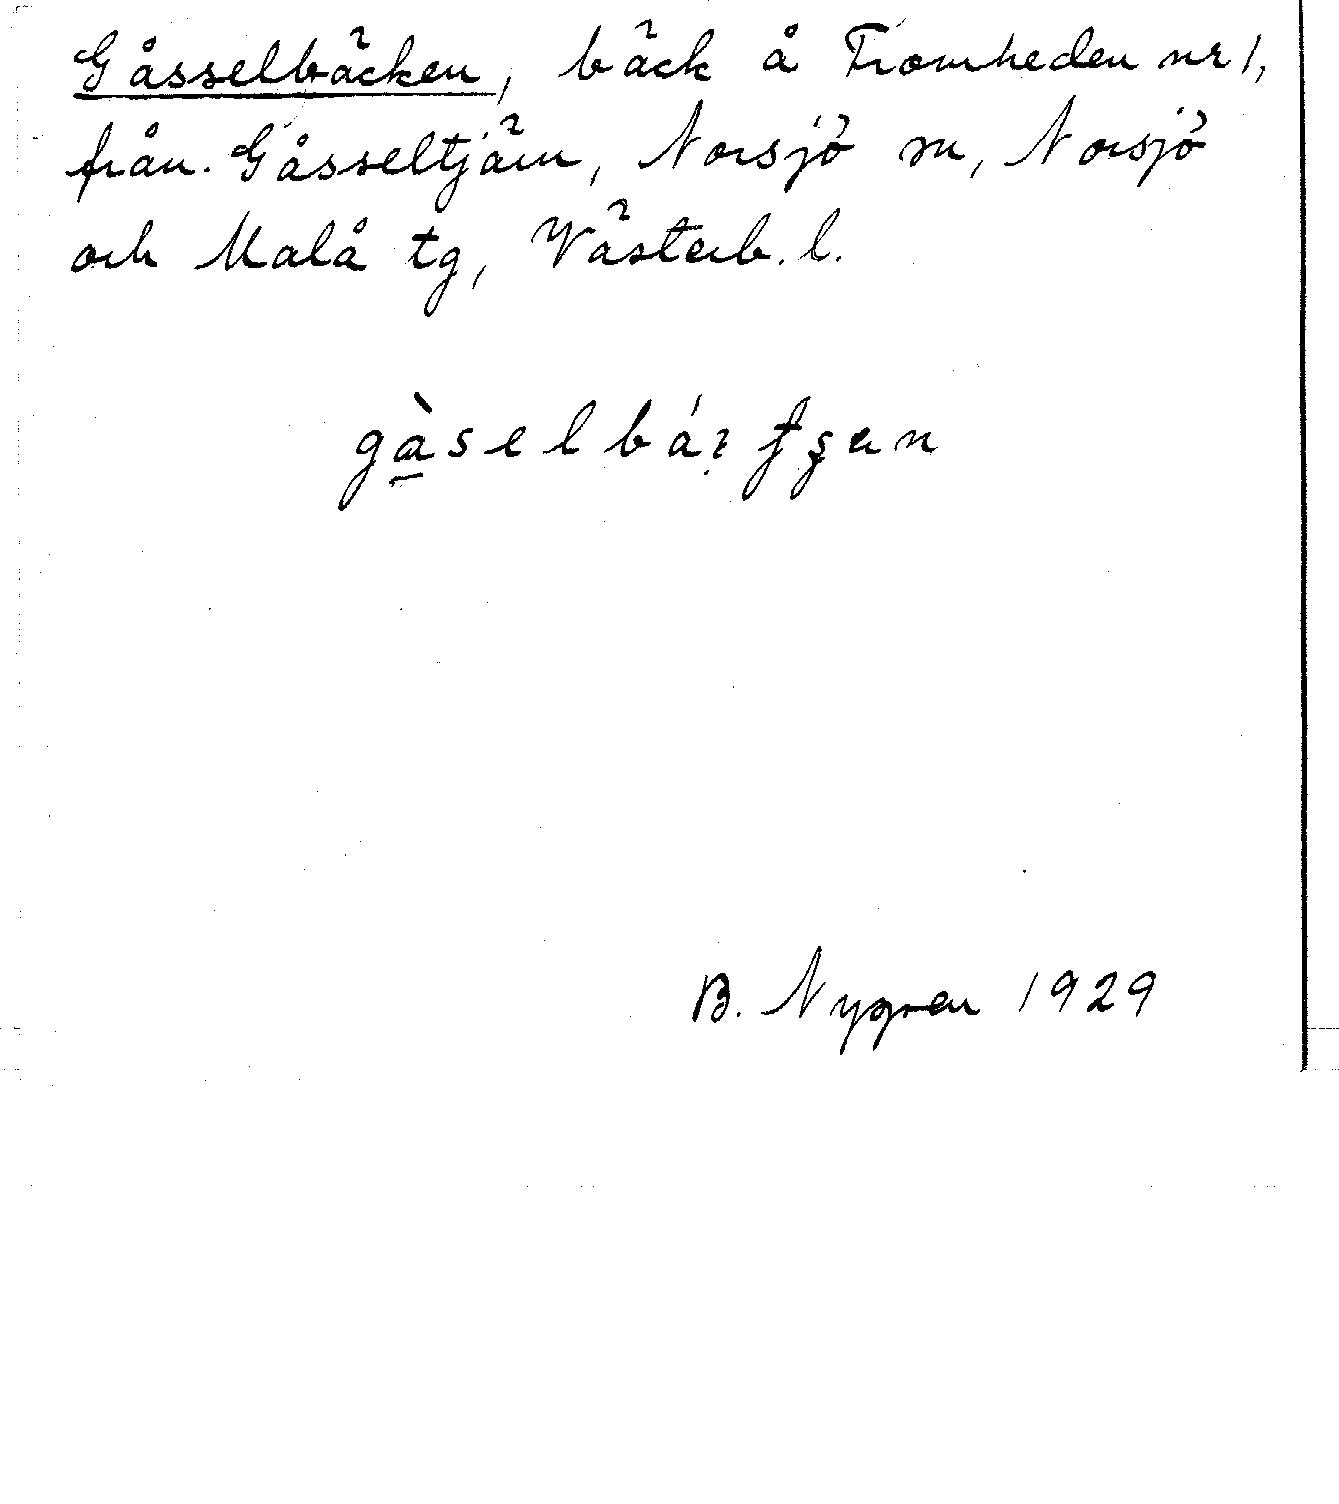 Gåsselbäcken, bäck å Tromheden nr 1,
från. Gåsseltjärn, Norsjö sn, Norsjö
och Malå tg, Västerb. l.
B. Nygren 1929